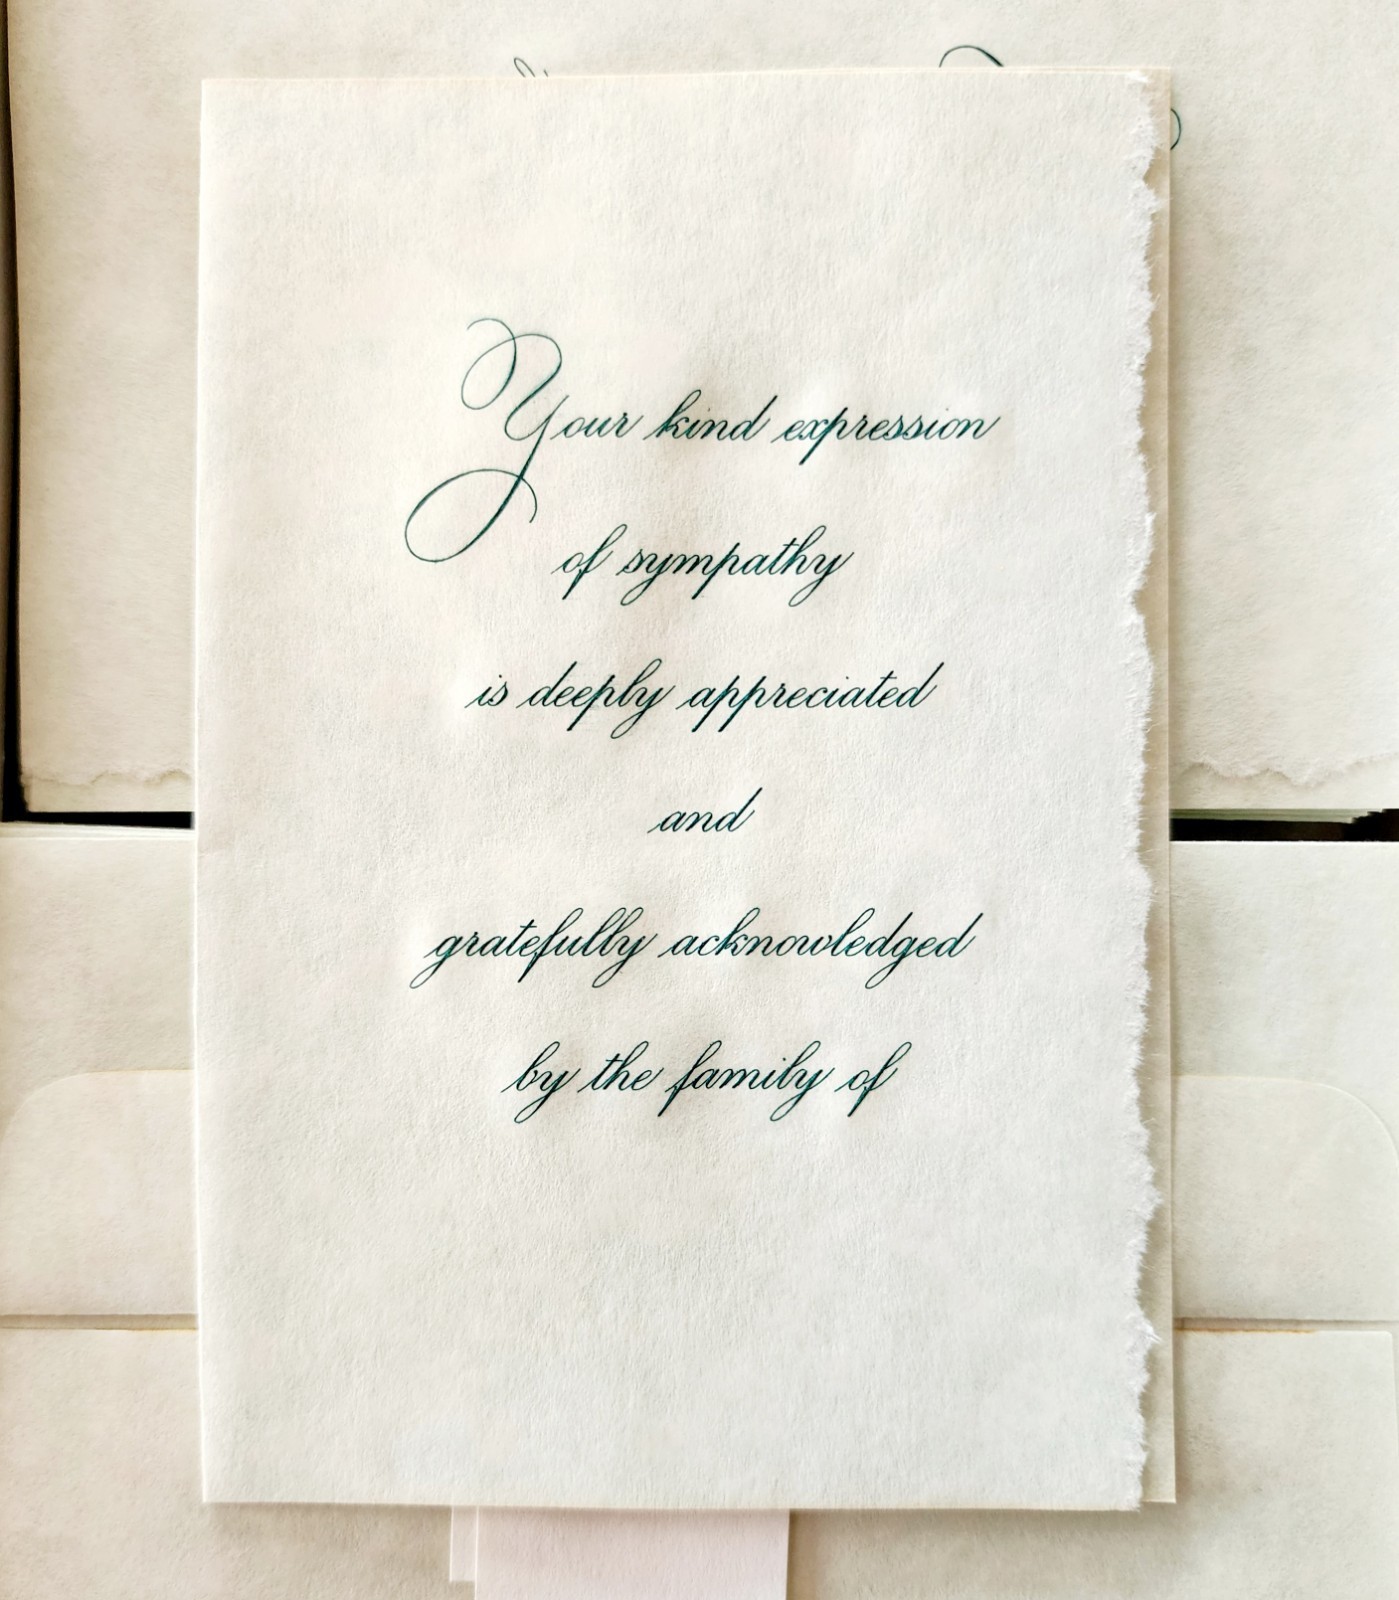 Your kind expression
of sympathy
is deeply appreciated
and
gratefully acknowledged
by the family of